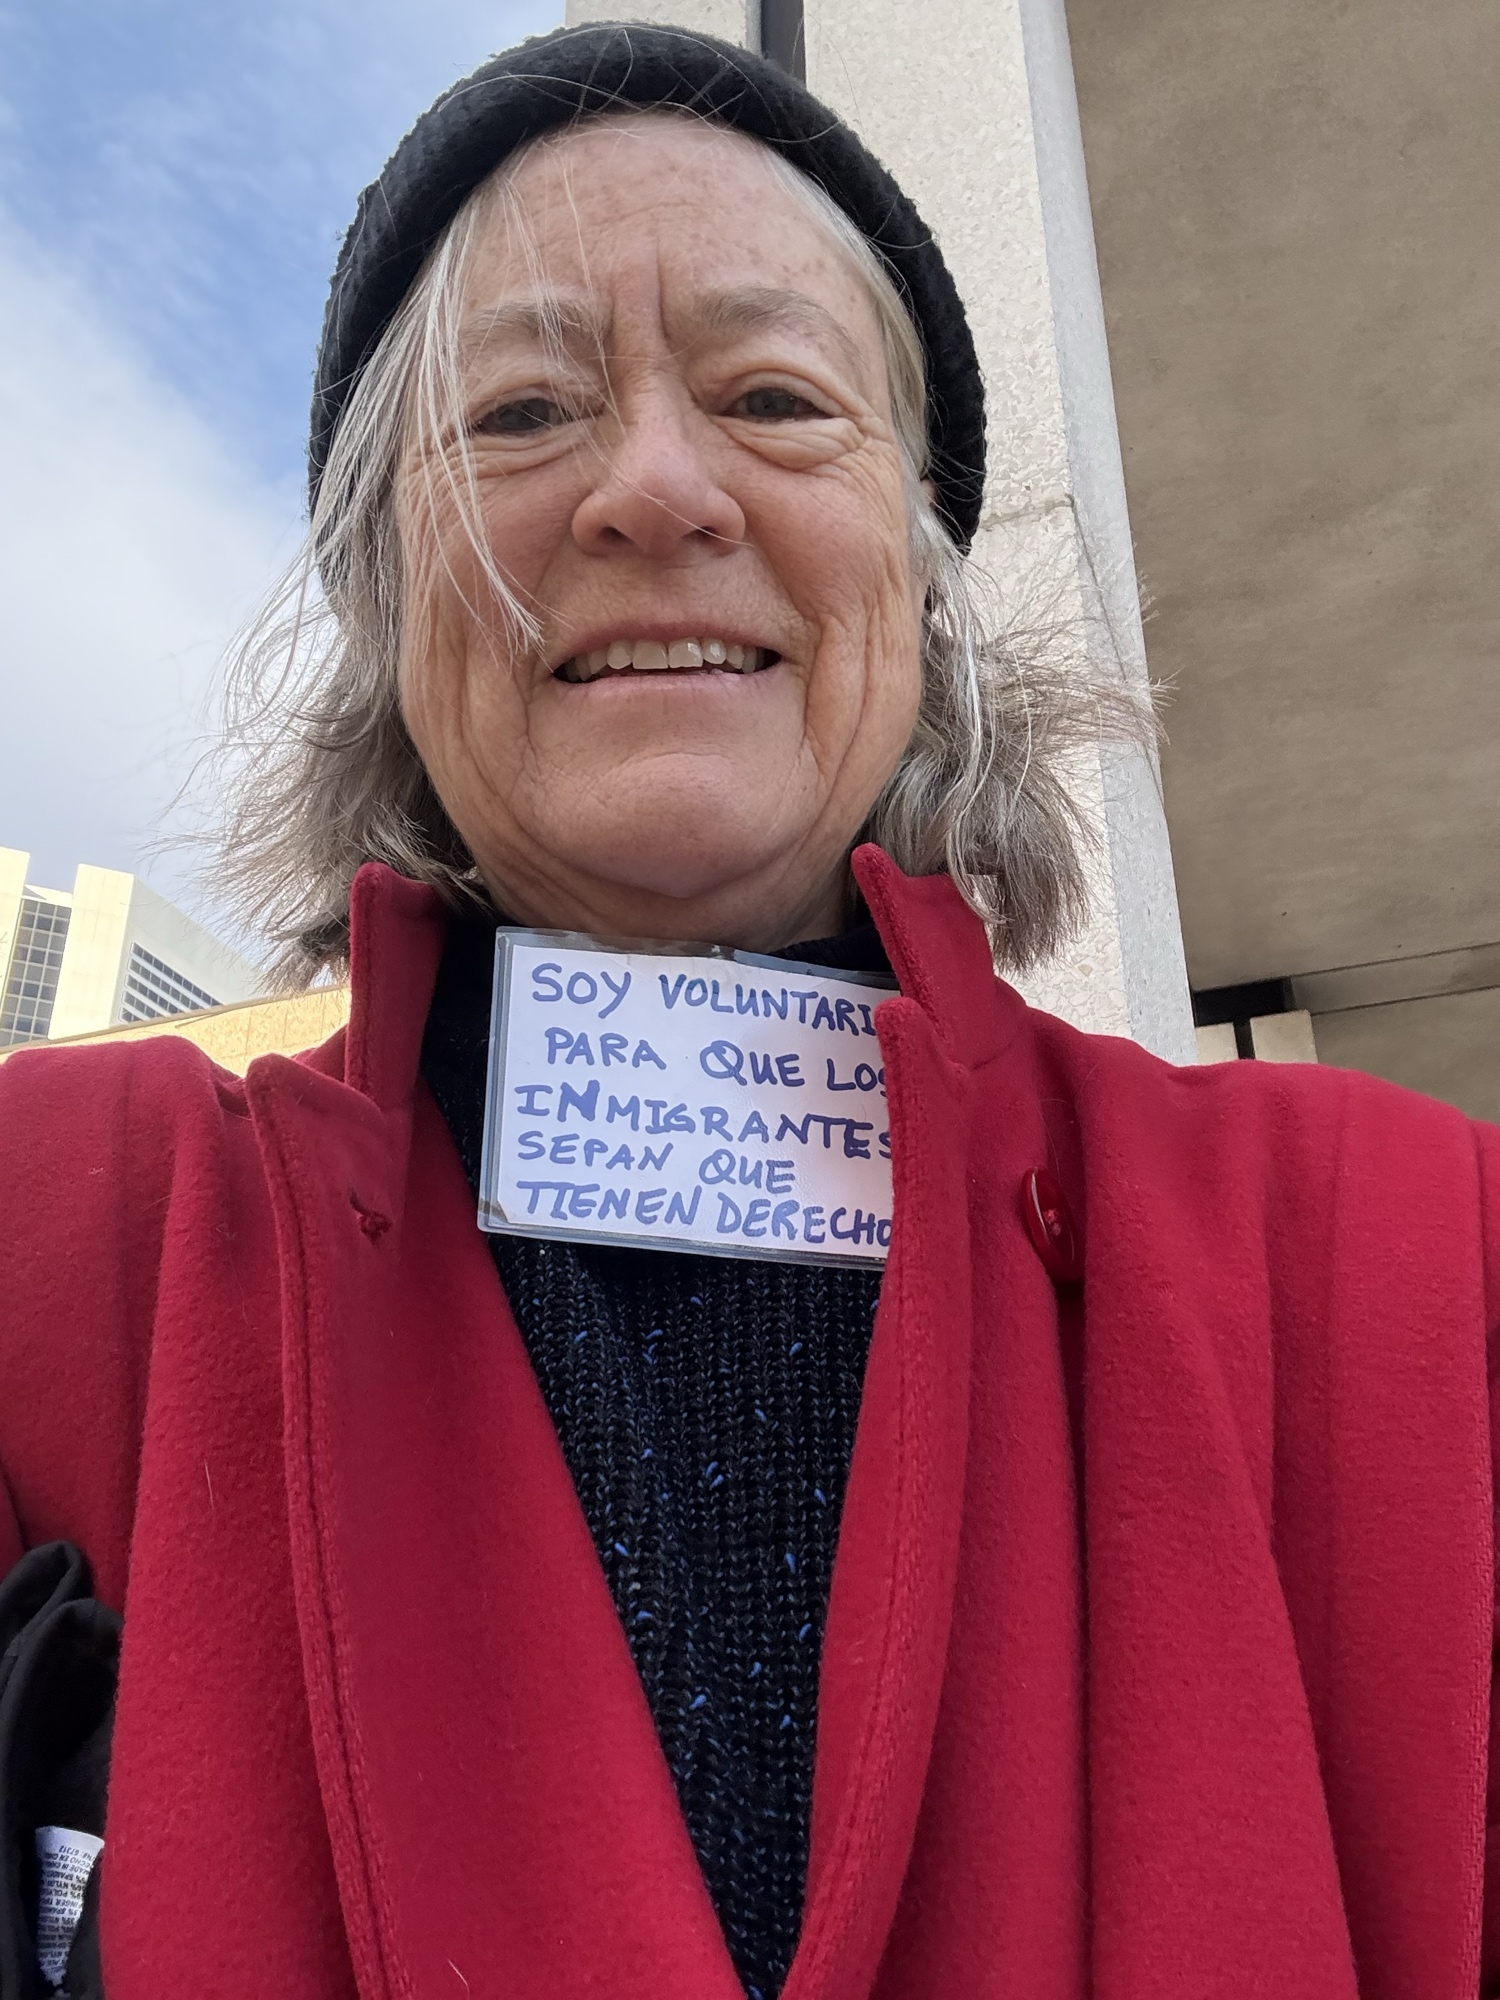 SOY VOLUNTARI
PARA QUE LOS
INMIGRANTES
SEPAN QUE
TIENEN DERECHO